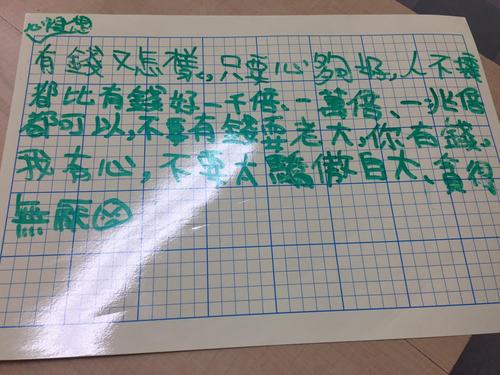 心裡想
有錢又怎樣，只要心夠好，人不壞
都比有錢好一千倍、一萬倍、一兆倍
都可以，不要有錢耍老大，你有錢，
我有心，不要太驕傲自大、貪得
無厭